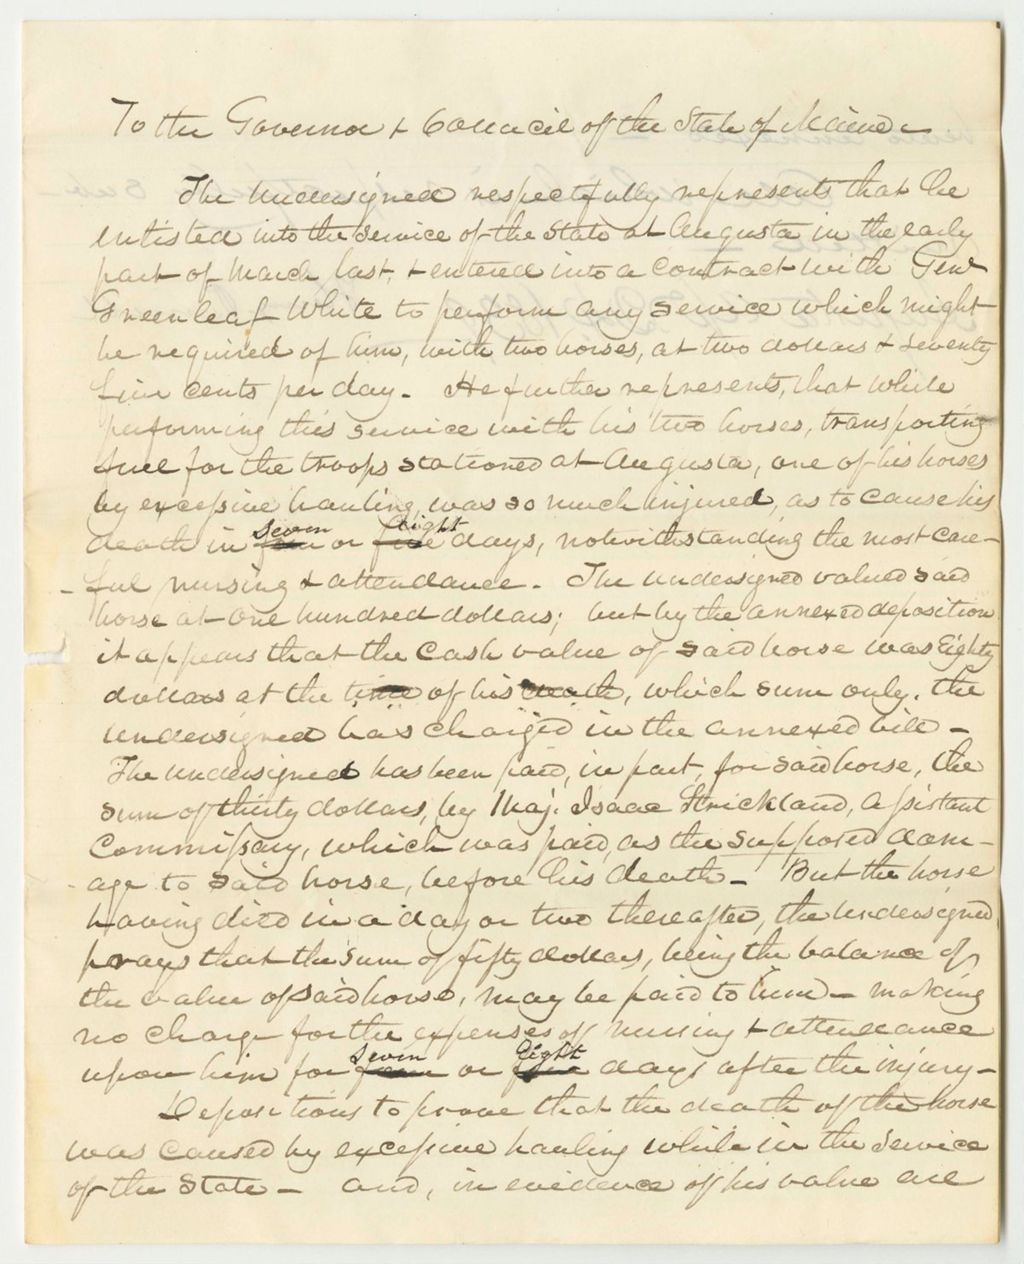 To the Governor & Council of the State of Maine –
The undersigned respectfully represents that he
entisted into the service of the State at Augusta in the early
part of March last, & entered into a contract with Genl
Greenleaf White to perform any service which might
be required of him, with two horses, at two dollars & seventy
five cents per day. He further represents, that while
performing this service with his two horses, transporting
fuel for the troops stationed at Augusta, one of his horses
by excessive hauling, was so much injured, as to cause his
death in seven or Eight days, notwithstanding the most care-
-ful nursing & attendance. The undersigned valued said
horse at one hundred dollars; but by the annexed deposition
it appears that the cash value of said horse was Eighty
dollars at the time of his death, which sum only, the
undersigned has charged in the annexed bill –
The undersigned has been paid, in part, for said horse, the
sum of thirty dollars, by Maj. Isaac Strickland, assistant
Commissary, which was paid, as the supposed dam-
-age to said horse, before his death – But the horse
having died in a day or two thereafter, the undersigned
prays that the sum of fifty dollars, being the balance of
the value of said horse, may be paid to him – making
no charge for the expenses of nursing & attendance
upon him for seven or Eight days after the injury –
Depositions to prove that the death of the horse
was caused by excessive hauling while in the service
of the State – and, in evidence of his value are